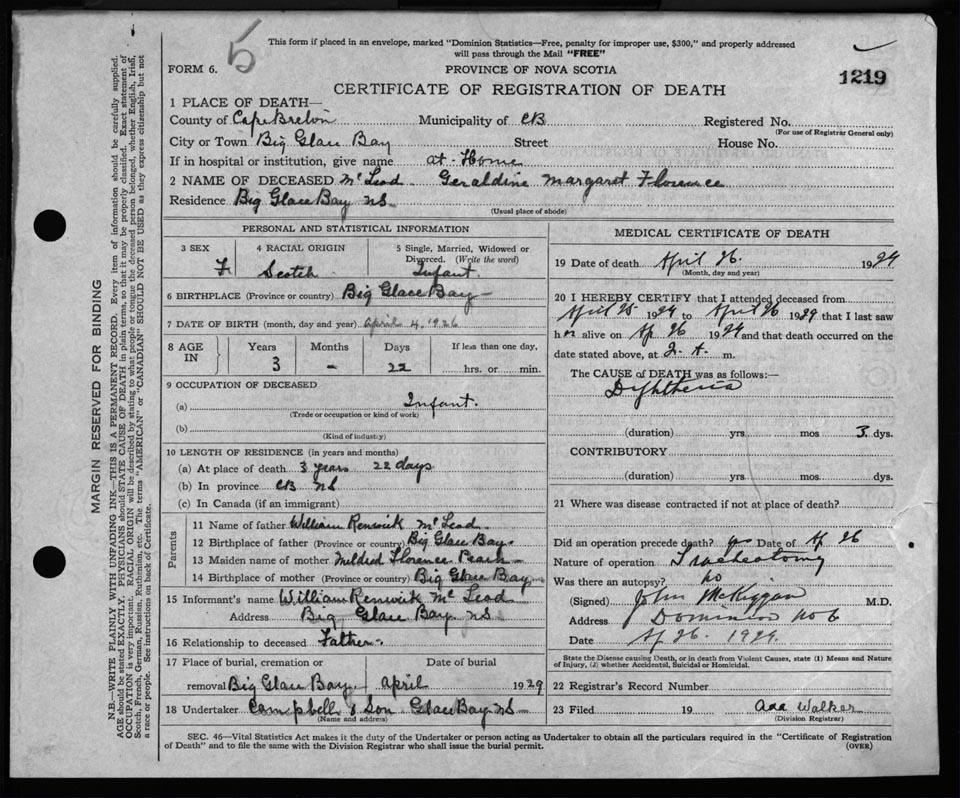 5
This form if placed in an envelope, marked "Dominion Statistics—Free, penalty for improper use, $300," and properly addressed
will pass through the Mail "FREE"
FORM 6.
PROVINCE OF NOVA SCOTIA
1219
CERTIFICATE OF REGISTRATION OF DEATH
1 PLACE OF DEATH—
County of Cape Breton Municipality of CB Registered No.
(For use of Registrar General only)
City or Town Big Glace Bay Street House No.
If in hospital or institution, give name at-Home
2 NAME OF DECEASED McLeod Geraldine Margaret Florence
Residence Big Glace Bay NS
(Usual place of abode)
PERSONAL AND STATISTICAL INFORMATION
3 SEX 4 RACIAL ORIGIN 5 Single, Married, Widowed or
Divorced. (Write the word)
F Scotch Infant
6 BIRTHPLACE (Province or country) Big Glace Bay
7 DATE OF BIRTH (month, day and year) April 4, 1926
8 AGE IN Years Months Days If less than one day,
3 - 22 hrs. or min.
9 OCCUPATION OF DECEASED
(a) Infant.
(Trade or occupation or kind of work)
(b)
(Kind of industry)
10 LENGTH OF RESIDENCE (in years and months)
(a) At place of death 3 years 22 days
(b) In province CB NS
(c) In Canada (if an immigrant)
Parents
11 Name of father William Renwick McLeod
12 Birthplace of father (Province or country) Big Glace Bay.
13 Maiden name of mother Mildred Florence
14 Birthplace of mother (Province or country) Big Glace Bay
15 Informant's name William Renwick McLeod
Address Big Glace Bay NS
16 Relationship to deceased Father
17 Place of burial, cremation or Date of burial
removal Big Glace Bay. April 1929
18 Undertaker Campbell & Son Glace Bay NS
(Name and address)
MEDICAL CERTIFICATE OF DEATH
19 Date of death April 26. 1929
(Month, day and year)
20 I HEREBY CERTIFY that I attended deceased from
April 25 1929 to April 26 1929 that I last saw
h er alive on Ap 26 1929 and that death occurred on the
date stated above, at 2. A. m.
The CAUSE of DEATH was as follows:—
Dyhtheria
(duration) yrs mos 3 dys.
CONTRIBUTORY
(duration) yrs mos dys.
21 Where was disease contracted if not at place of death?
Did an operation precede death? Date of Ap 26
Nature of operation Tracheotomy
Was there an autopsy? No
(Signed) John McKiggan M.D.
Address Dominion No 6
Date Ap 26. 1929.
State the Disease causing Death, or in death from Violent Causes, state (1) Means and Nature
of Injury, (2) whether Accidental, Suicidal or Homicidal.
22 Registrar's Record Number
23 Filed 19 Ada Walker
(Division Registrar)
SEC. 46—Vital Statistics Act makes it the duty of the Undertaker or person acting as Undertaker to obtain all the particulars required in the "Certificate of Registration
of Death" and to file the same with the Division Registrar who shall issue the burial permit.
(OVER)
MARGIN RESERVED FOR BINDING
N.B.—WRITE PLAINLY WITH UNFADING INK—THIS IS A PERMANENT RECORD. Every item of information should be carefully supplied.
AGE should be stated EXACTLY. PHYSICIANS should STATE CAUSE OF DEATH in plain terms, so that it may be properly classified. Exact statement of
OCCUPATION is very important. RACIAL ORIGIN will be described by stating to what people or tongue the deceased person belonged, whether English, Irish,
Scotch, French, German, Russian, Ruthenian, etc. The terms "AMERICAN" or "CANADIAN" SHOULD NOT BE USED as they express citizenship but not
a race or people. See instructions on back of Certificate.